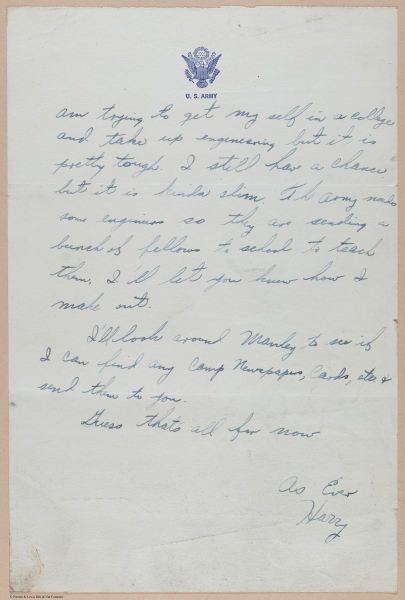 U. S. ARMY
am trying to get my self in a college
and take up engineering but it is
pretty tough. I still have a chance
but it is kinda slim. The army needs
some engineers so they are sending a
bunch of fellows to school to teach
them. I'll let you know how I
make out.
I'll look around Manley to see if
I can find any Camp Newspapers, Cards, etc &
send them to you.
Guess thats all for now
As Ever
Harry